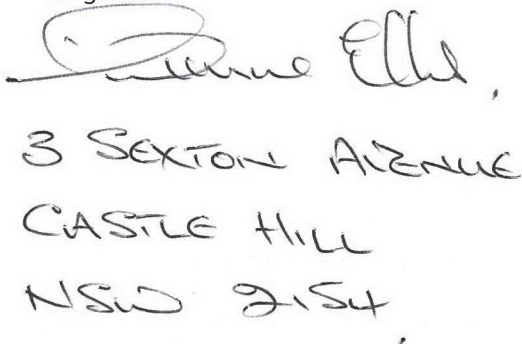 3 SEXTON AVENUE
CASTLE HILL
NSW 2154